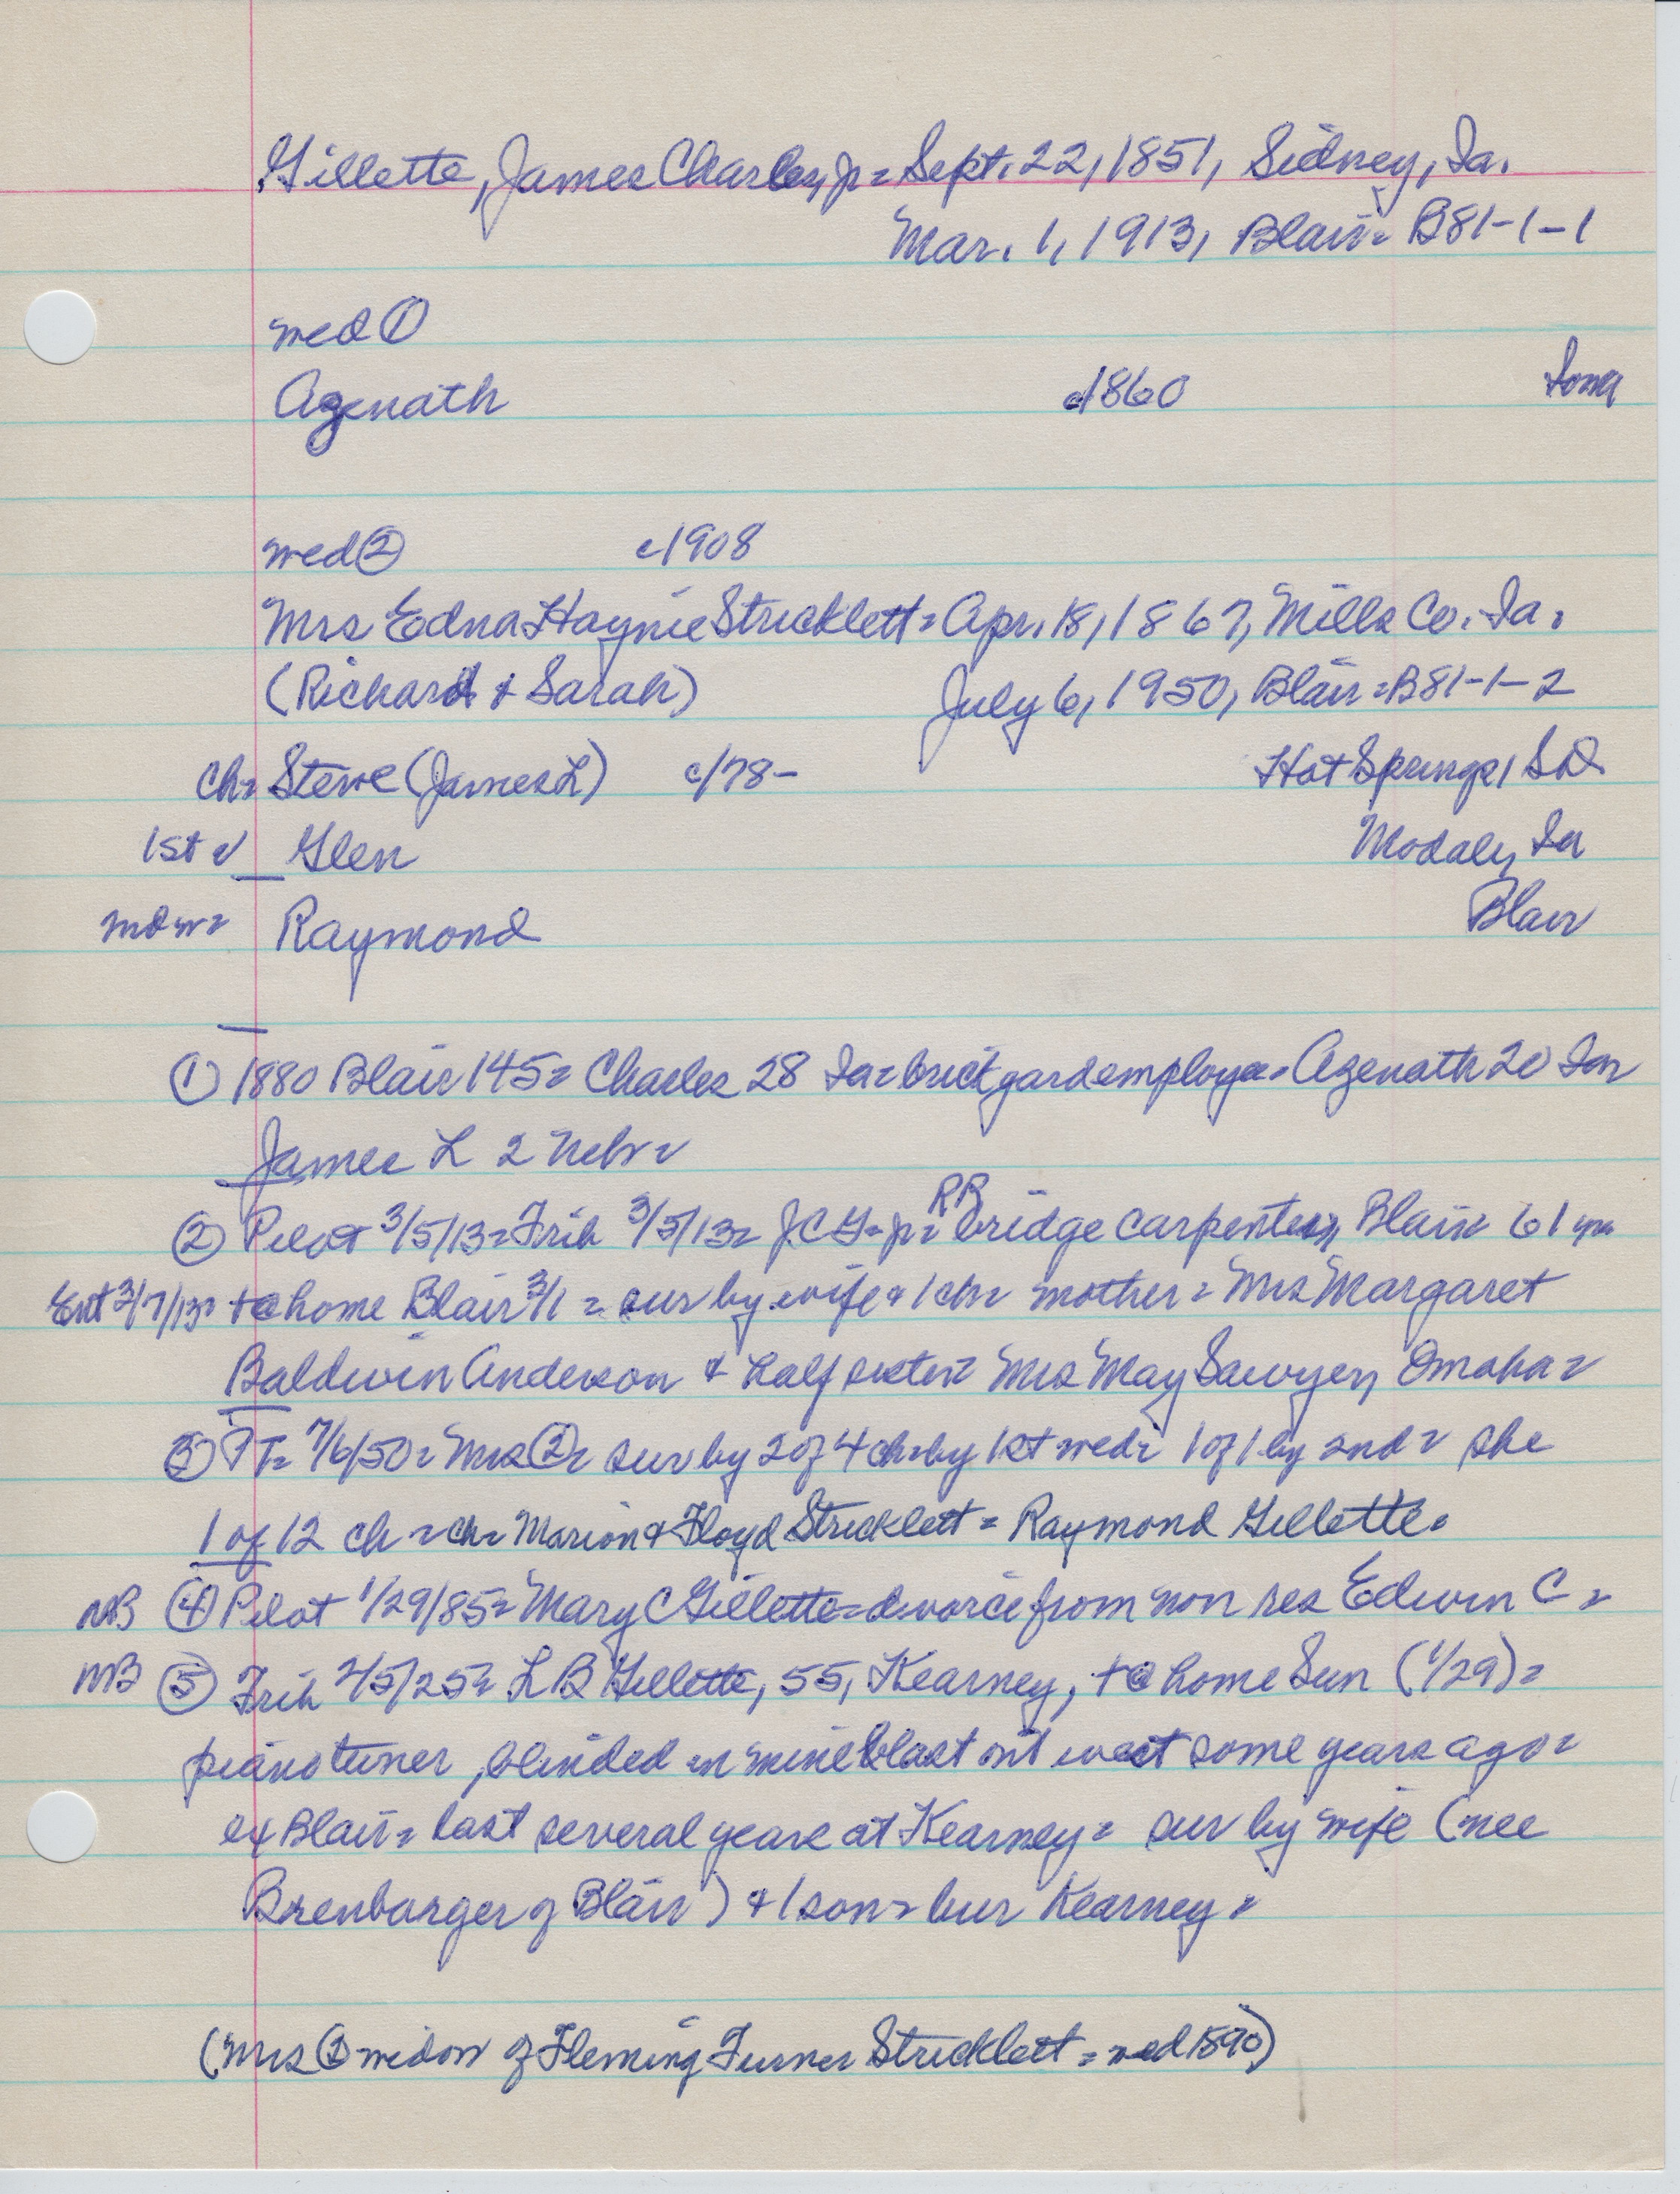 Gillette, James Charles, jr = Sept. 22, 1851, Sidney, Ia.
Mar. 1, 1913, Blair = B81-1-1
wed ①
Azenath c1860 Iowa
wed ② c1908
Mrs Edna Haynie Stricklett = Apr. 18, 1867, Mills Co. Ia.
(Richard & Sarah) July 6, 1950, Blair = B81-1-2
ch = Steve (James L) c/78- Hot Springs, SD
1st = Glen Modale, Ia
Raymond Blair
① 1880 Blair 145 = Charles 28 Ia = brick yard employee = Azenath 20 Ia =
James L 2 Nebr =
② Pilot 3/5/13 = Trib 3/5/13 = JCG = jr = RR bridge carpenter, Blair 61 yrs
Ent 3/7/13 = + @ home Blair 3/1 = sur by wife & 1 ch = mother = Mrs Margaret
Baldwin Anderson & half sister = Mrs May Sawyer, Omaha =
③ PT = 7/6/50 = Mrs ② = sur by 2 of 4 ch = by 1st wed = 1 of 1 by 2nd = she
1 of 12 ch = ch = Marion & Floyd Stricklett = Raymond Gillette.
NB ④ Pilot 1/29/85 = Mary C Gillette = divorce from non res Edwin C =
NB ⑤ Trib 2/5/25 = L B Gillette, 55, Kearney, + @ home Sun (1/29) =
piano tuner, blinded in mine blast out west some years ago =
ex Blair = last several years at Kearney = sur by wife (nee
Brenbarger of Blair) & 1 son = bur Kearney =
(Mrs ② widow of Fleming Turner Stricklett = wed 1890)